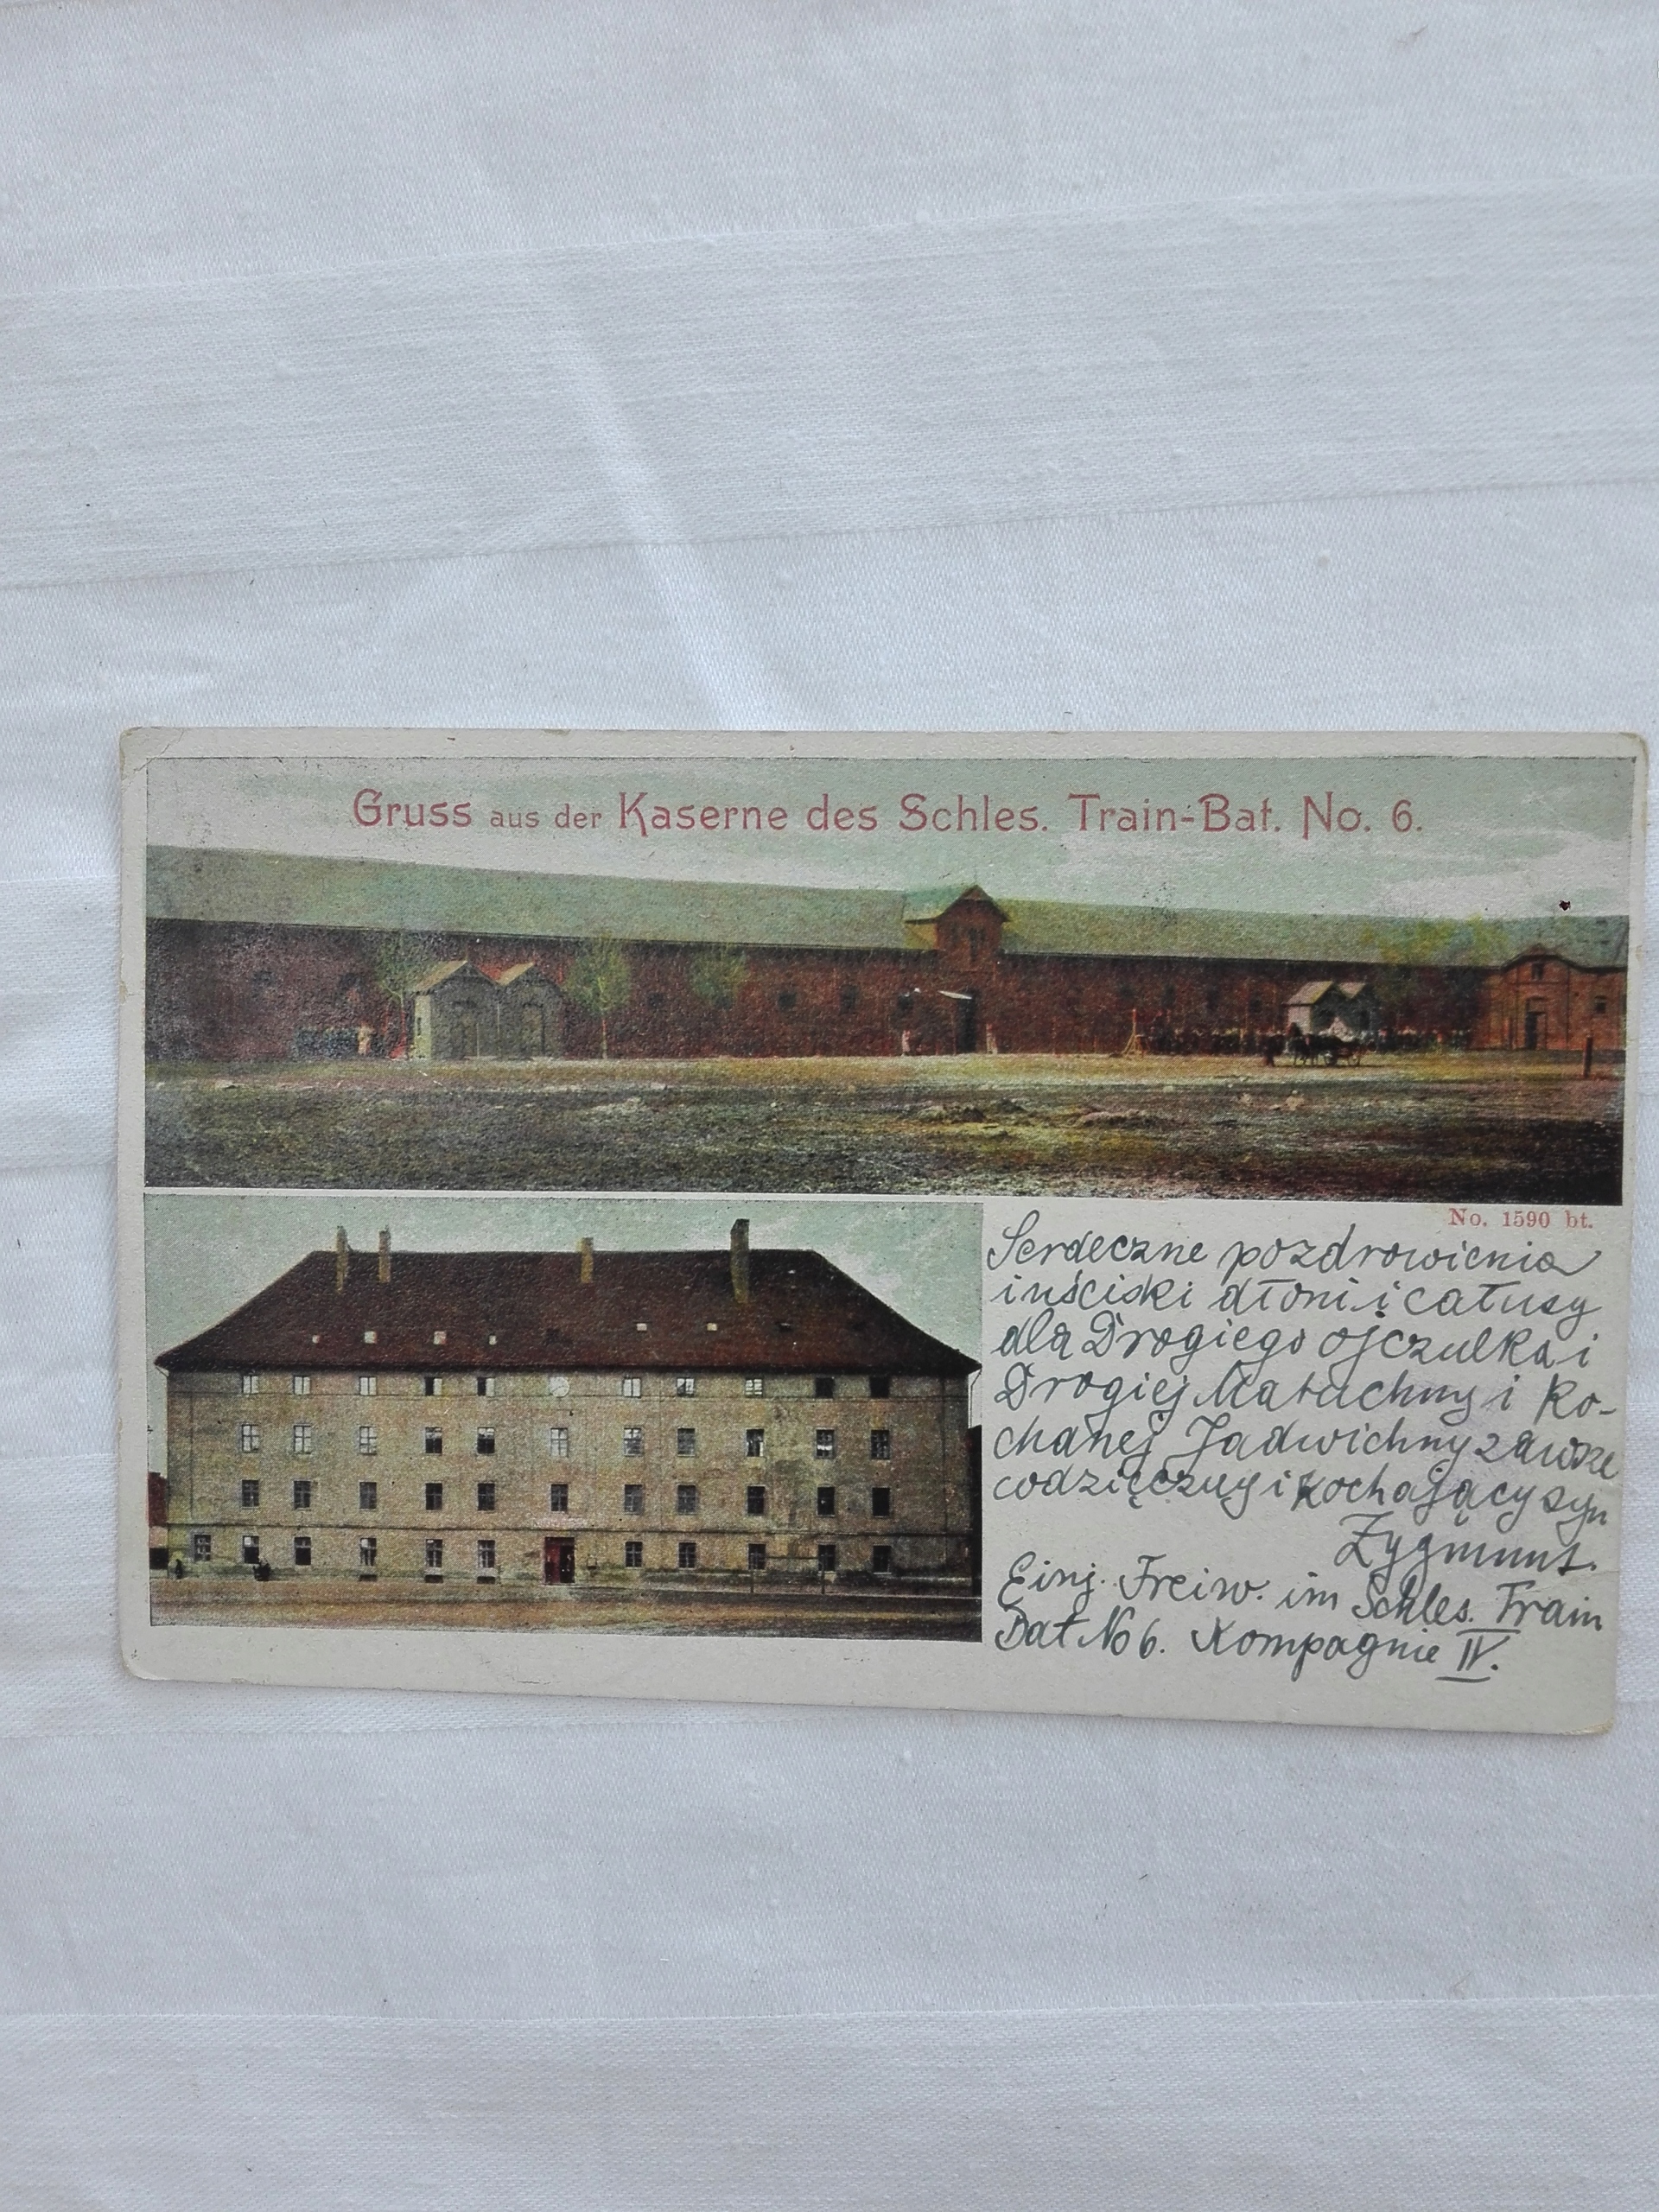 Gruss aus der Kaserne des Schles. Train-Bat. No. 6.
No. 1590 bt.
Serdeczne pozdrowienia
i uściski dłoni i całusy
dla Drogiego ojczulka i
Drogiej Matuchny i Ko-
chanej Jadwichny zawsze
wdzięczny i kochający syn
Zygmunt.
Einj. Freiw. im Schles. Train
Bat No 6. Kompagnie IV.